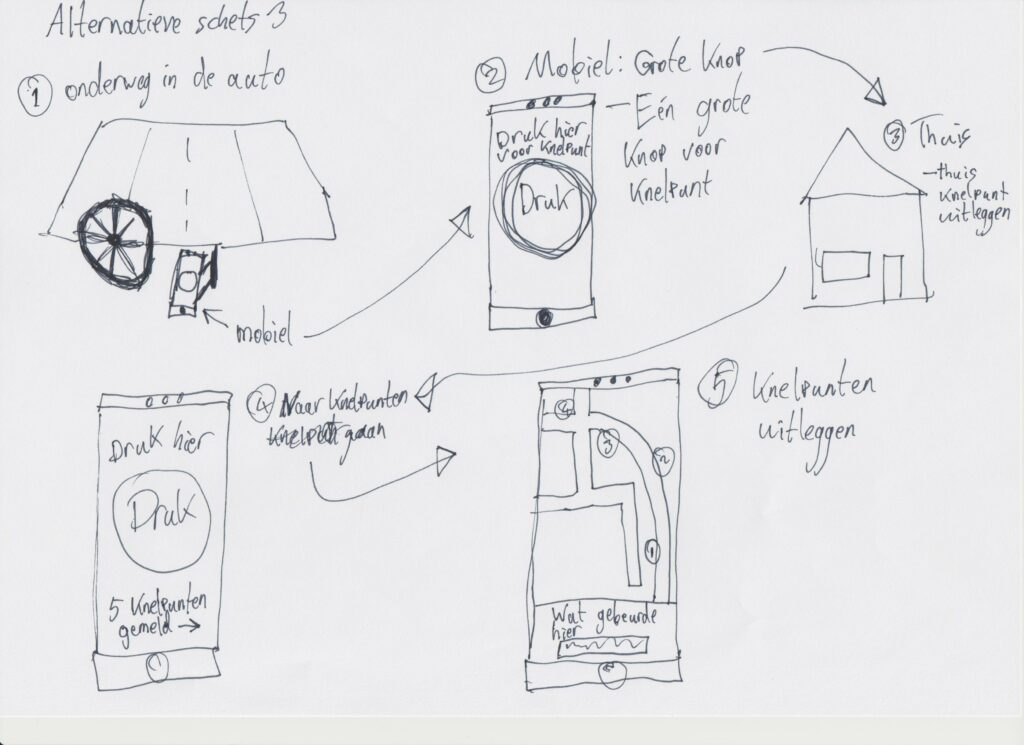 Alternatieve schets 3
1 onderweg in de auto
mobiel
2 Mobiel: Grote Knop
- Eén grote
Knop voor
Knelpunt
Druk hier
voor Knelpunt
Druk
3 Thuis
- thuis
Knelpunt
uitleggen
4 Naar Knelpunten
gaan
Druk hier
Druk
5 Knelpunten
gemeld →
5 Knelpunten
uitleggen
4
3
2
1
Wat gebeurde
hier